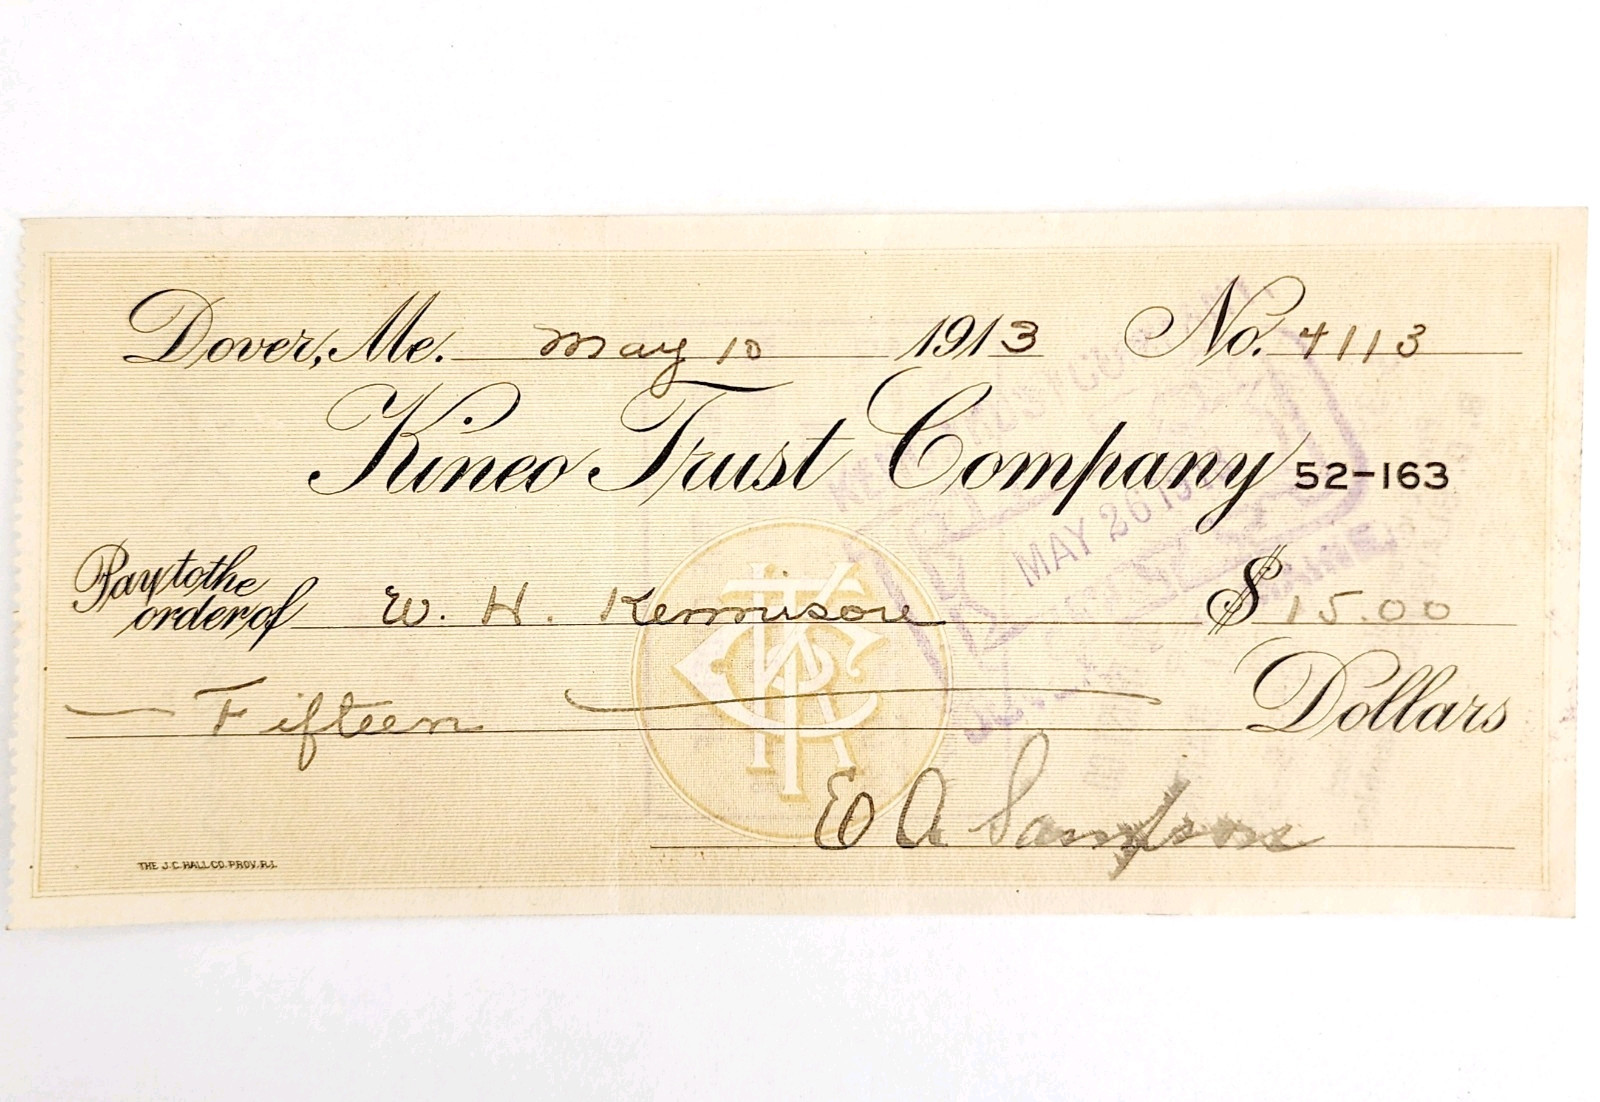 Dover, Me. May 10 1913 No. 4113
Kineo Trust Company 52-163
Pay to the
order of W. H. Kennisore $ 15.00
Fifteen Dollars
E A Sampson
THE J.C. HALL CO. PROV. R.I.
MAY 26 19